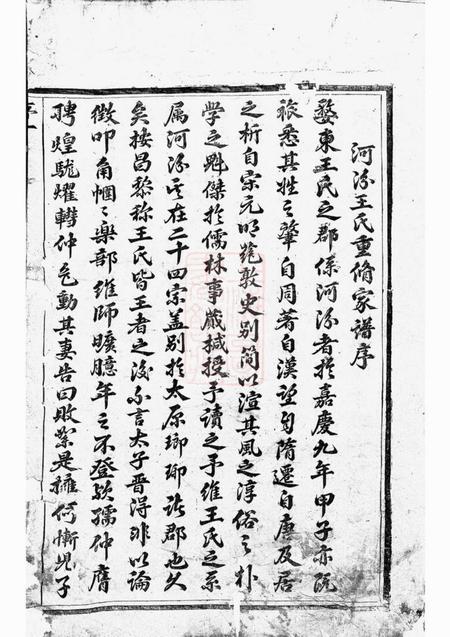 河汾王氏重脩家譜序
婺東王氏之郡係河汾者於嘉慶九年甲子亦既
旅悉其姓之肇自周著自漢望自隋遷自唐及居
之析自宗元明範敦史别簡以渲其風之淳俗之朴
學之魁傑於儒林事嚴掝授予讀之予維王氏之系
属河汾字在二十四宗盖别於太原瑯琊諸郡也久
矣按昌黎称王氏皆王者之後不言太子晋得非以論
徴叩角悃樂部維師曠臆年之不登欤孺仲膺
聘煌駹燿轉仲乞動其妻告曰敗絮是擁何慚児子
序一